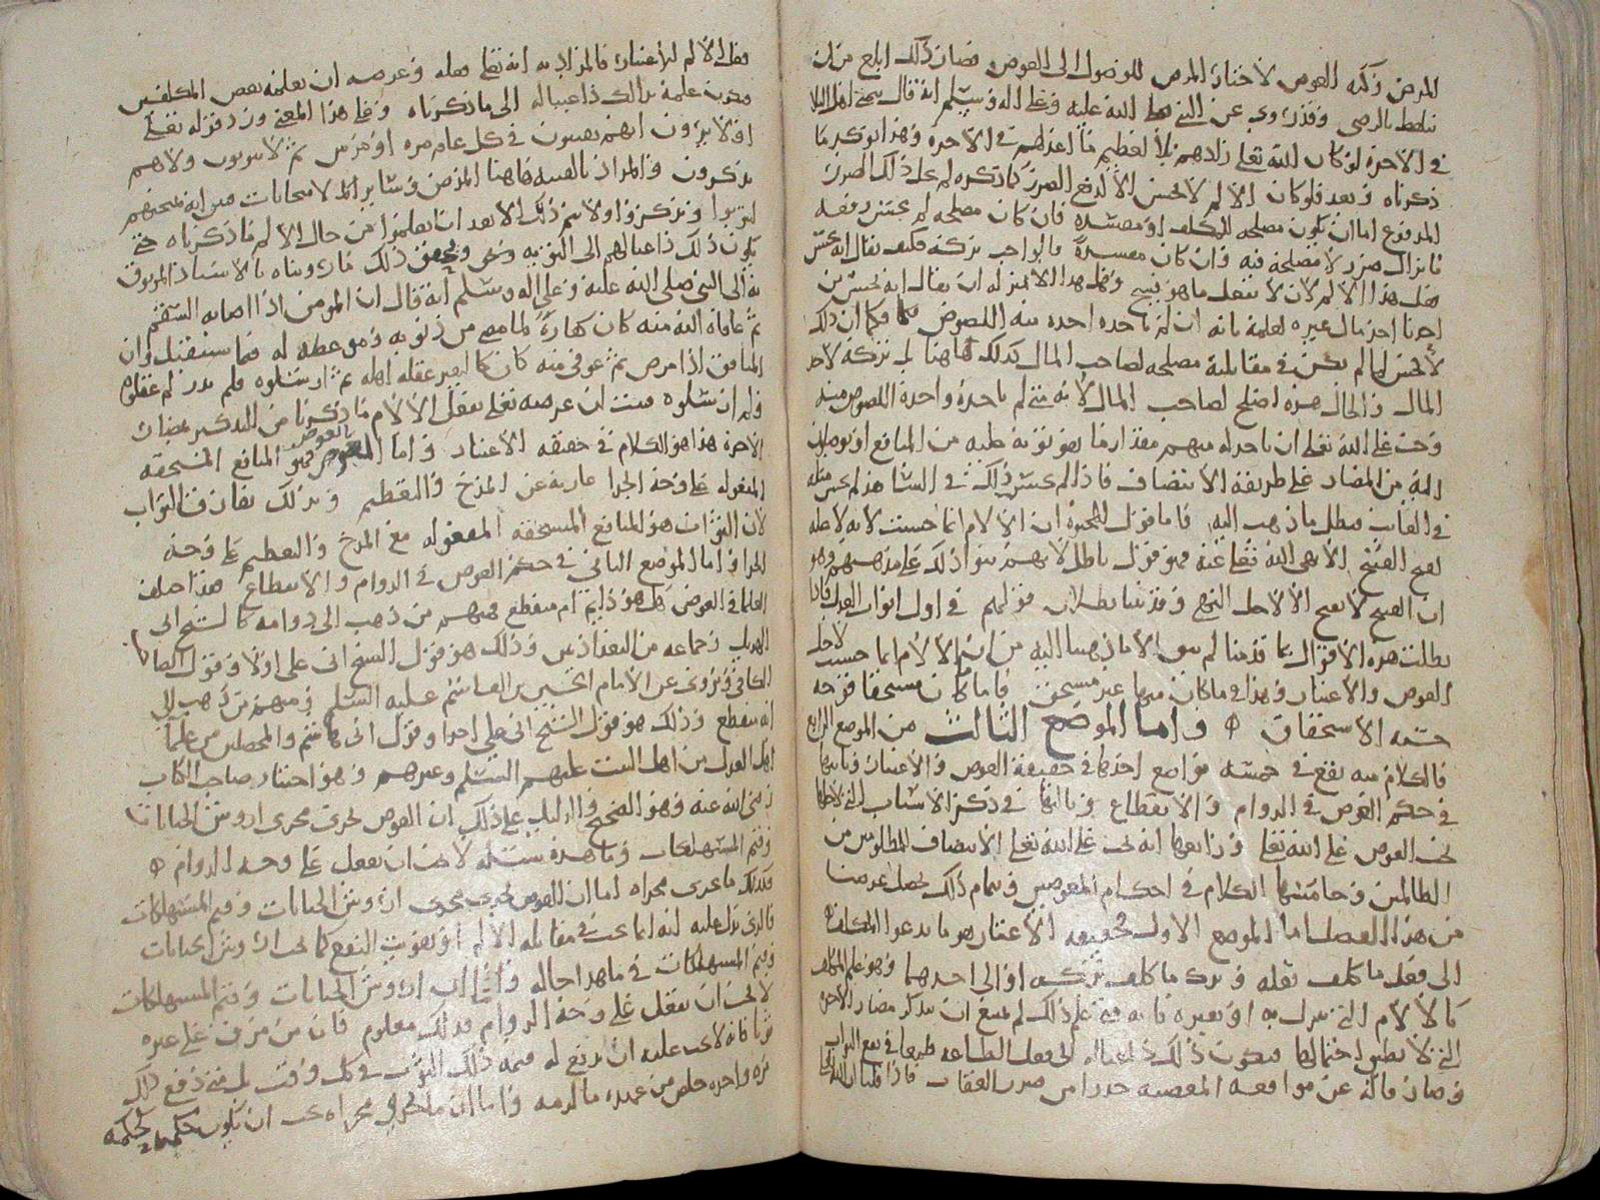 المرض وكنه العوض لاختار المرض للوصول الى العوض فصار ذلك ابلغ من ان
بالرضى وقد روي عن النبي صلى الله عليه وعلى اله وسلم انه قال يتمنى اهل البلا
في الاخرة لو كان الله تعالى زادهم بلاً لعظيم ما اعد لهم في الاخرة وهذا يوكد ما
ذكرناه وبعد فلو كان الالم لا يحسن الا لدفع الضرر لما ذكره لم يخل ذلك الضرر
المدفوع اما ان يكون مصلحه للمكلف او مفسده فان كان مصلحه لم يحسن دفعه
ما يزال ضرر لا مصلحة فيه وان كان مفسدة فالواجب تركه فكيف يقال انه يحسن
فعل هذا الالم لان لا يفعل ما هو قبيح وهل هذا الا بمنزله ان يقال انه يحسن من
احدنا اخذ مال غيره لعلمه بانه ان لم ياخذه اخذه منه اللصوص فكما ان ذلك
لا يحسن لما لم يكن في مقابلته مصلحه لصاحب المال كذلك هاهنا بل تركه لاخذ
المال والحال هذه اصلح لصاحب المال لانه متى لم ياخذه واخذه اللصوص منه
وجب على الله تعالى ان ياخذ له منهم مقدار ما يفوتونه عليه من المنافع او يوصلون
اليه من المضار على طريقة الانتصاف فاذا لم يحسن ذلك في الشاهد لم يحسن مثله
في الغايب فبطل ما ذهب اليه فاما قول المجبرة ان الالام انما حسنت لانه لا علة
لقبح القبيح الا نهي الله تعالى عنه فهو قول باطل لانهم بنوا ذلك على مذهبهم وهو
ان القبيح لا يقبح الا لاجل النهي وقد بينا بطلان قولهم في اول ابواب العدل فاذا
بطلت هذه الاقوال بما قدمنا لم يبق الا ما ذهبنا اليه من ان الالام انما حسنت لاجل
العوض والاعتبار وهذا في ما كان منها غير مستحق فاما ما كان مستحقا فوجه
حسنه الاستحقاق واما الموضع الثالث من الموضع الرابع
فالكلام منه يقع في خمسه مواضع احدها في حقيقة العوض والاعتبار وثانيها
في حكم العوض في الدوام والانقطاع وثالثها في ذكر الاسباب التي لاجلها
يجب العوض على الله تعالى ورابعها انه يجب على الله تعالى الانتصاف للمظلومين من
الظالمين وخامسها الكلام في احكام المعوضين وبتمام ذلك يحصل غرضنا
من هذا الفصل اما الموضع الاول فحقيقة الاعتبار هو ما يدعوا المكلف
الى فعل ما كلف فعله وترك ما كلف تركه او الى احدهما وهو علم المكلف
كالالام التي تنزل به او بغيره فانه متى علم ذلك لم يمتنع ان يتذكر مضار الاخره
التي لا يطيق احتمالها فيكون ذلك داعيا له الى فعل الطاعه طمعا في نفع الثواب
وصارفا له عن مواقعه المعصيه حذرا من ضرر العقاب فاذا قلنا ان الله تعالى
فعل الالم للاعتبار فالمراد به انه تعالى فعله وغرضه ان يعلمه بعض المكلفين
فيكون علمه بذلك داعيا له الى ما ذكرناه وعلى هذا المعنى ورد قوله تعالى
اولا يرون انهم يفتنون في كل عام مره او مرتين ثم لا يتوبون ولا هم
يذكرون والمراد بالفتنه هاهنا المرض وسائر الامتحانات فبين انه يمتحنهم
ليتوبوا ويذكروا ولا يتم ذلك الا بعد ان يعلموا من حال الالم ما ذكرناه حتى
يكون ذلك داعيا لهم الى التوبه ويحقق ذلك ما رويناه بالاسناد الموثوق
به الى النبي صلى الله عليه وعلى اله وسلم انه قال ان المومن اذا اصابه السقم
ثم عافاه الله منه كان كفارةً لما مضى من ذنوبه وموعظه له فيما يستقبل وان
المنافق اذا مرض ثم عوفي منه كان كالبعير عقله اهله ثم ارسلوه فلم يدر لم عقلوه
ولم ارسلوه فبينت ان غرضه تعالى بفعل الالام ما ذكرنا من التذكير بمضار
الاخرة هذا هو الكلام في حقيقه الاعتبار واما العوض فهو المنافع المستحقه
المفعوله على وجه الجزا عارية عن المدح والتعظيم وبذلك يفارق الثواب
لان الثواب هو المنافع المستحقه المفعوله مع المدح والتعظيم على وجه
الجزا واما الموضع الثاني في حكم العوض في الدوام والانقطاع فقد اختلف
العلما في العوض هل هو دايم ام منقطع فمنهم من ذهب الى دوامه كالشيخ ابي
الهذيل وجماعه من البغداذيين وذلك هو قول الشيخ ابي علي اولا وقول الصاحب
الكافي ويروى عن الامام القسم بن ابرهيم عليه السلم ومنهم من ذهب الى
انه منقطع وذلك هو قول الشيخ ابي علي اخرا وقول ابي هاشم والمحصلين من علما
اهل العدل من اهل البيت عليهم السلم وغيرهم وهو اختيار صاحب الكتاب
رضي الله عنه وهو الصحيح والدليل على ذلك ان العوض يجري مجرى اروش الجنايات
وقيم المستهلكات وما هذه سبيله لا يجب ان يفعل على وجه الدوام
فكذلك ما جرى مجراه اما ان العوض يجري مجرى اروش الجنايات وقيم المستهلكات
فالذي يدل عليه انه انما يجب في مقابله الالم او تفويت النفع كما يجب اروش الجنايات
وقيم المستهلكات في ما هذا حاله واما ان اروش الجنايات وقيم المستهلكات
لا يجب ان تفعل على وجه الدوام فذلك معلوم فان من مزق على غيره
ثوبا فانه لا يجب عليه ان يدفع له قيمه ذلك الثوب في كل وقت بل متى دفع ذلك
مره واحده خلص من عهده ما لزمه واما ان ما جرى مجراه يجب ان يكون حكمه كحكمه